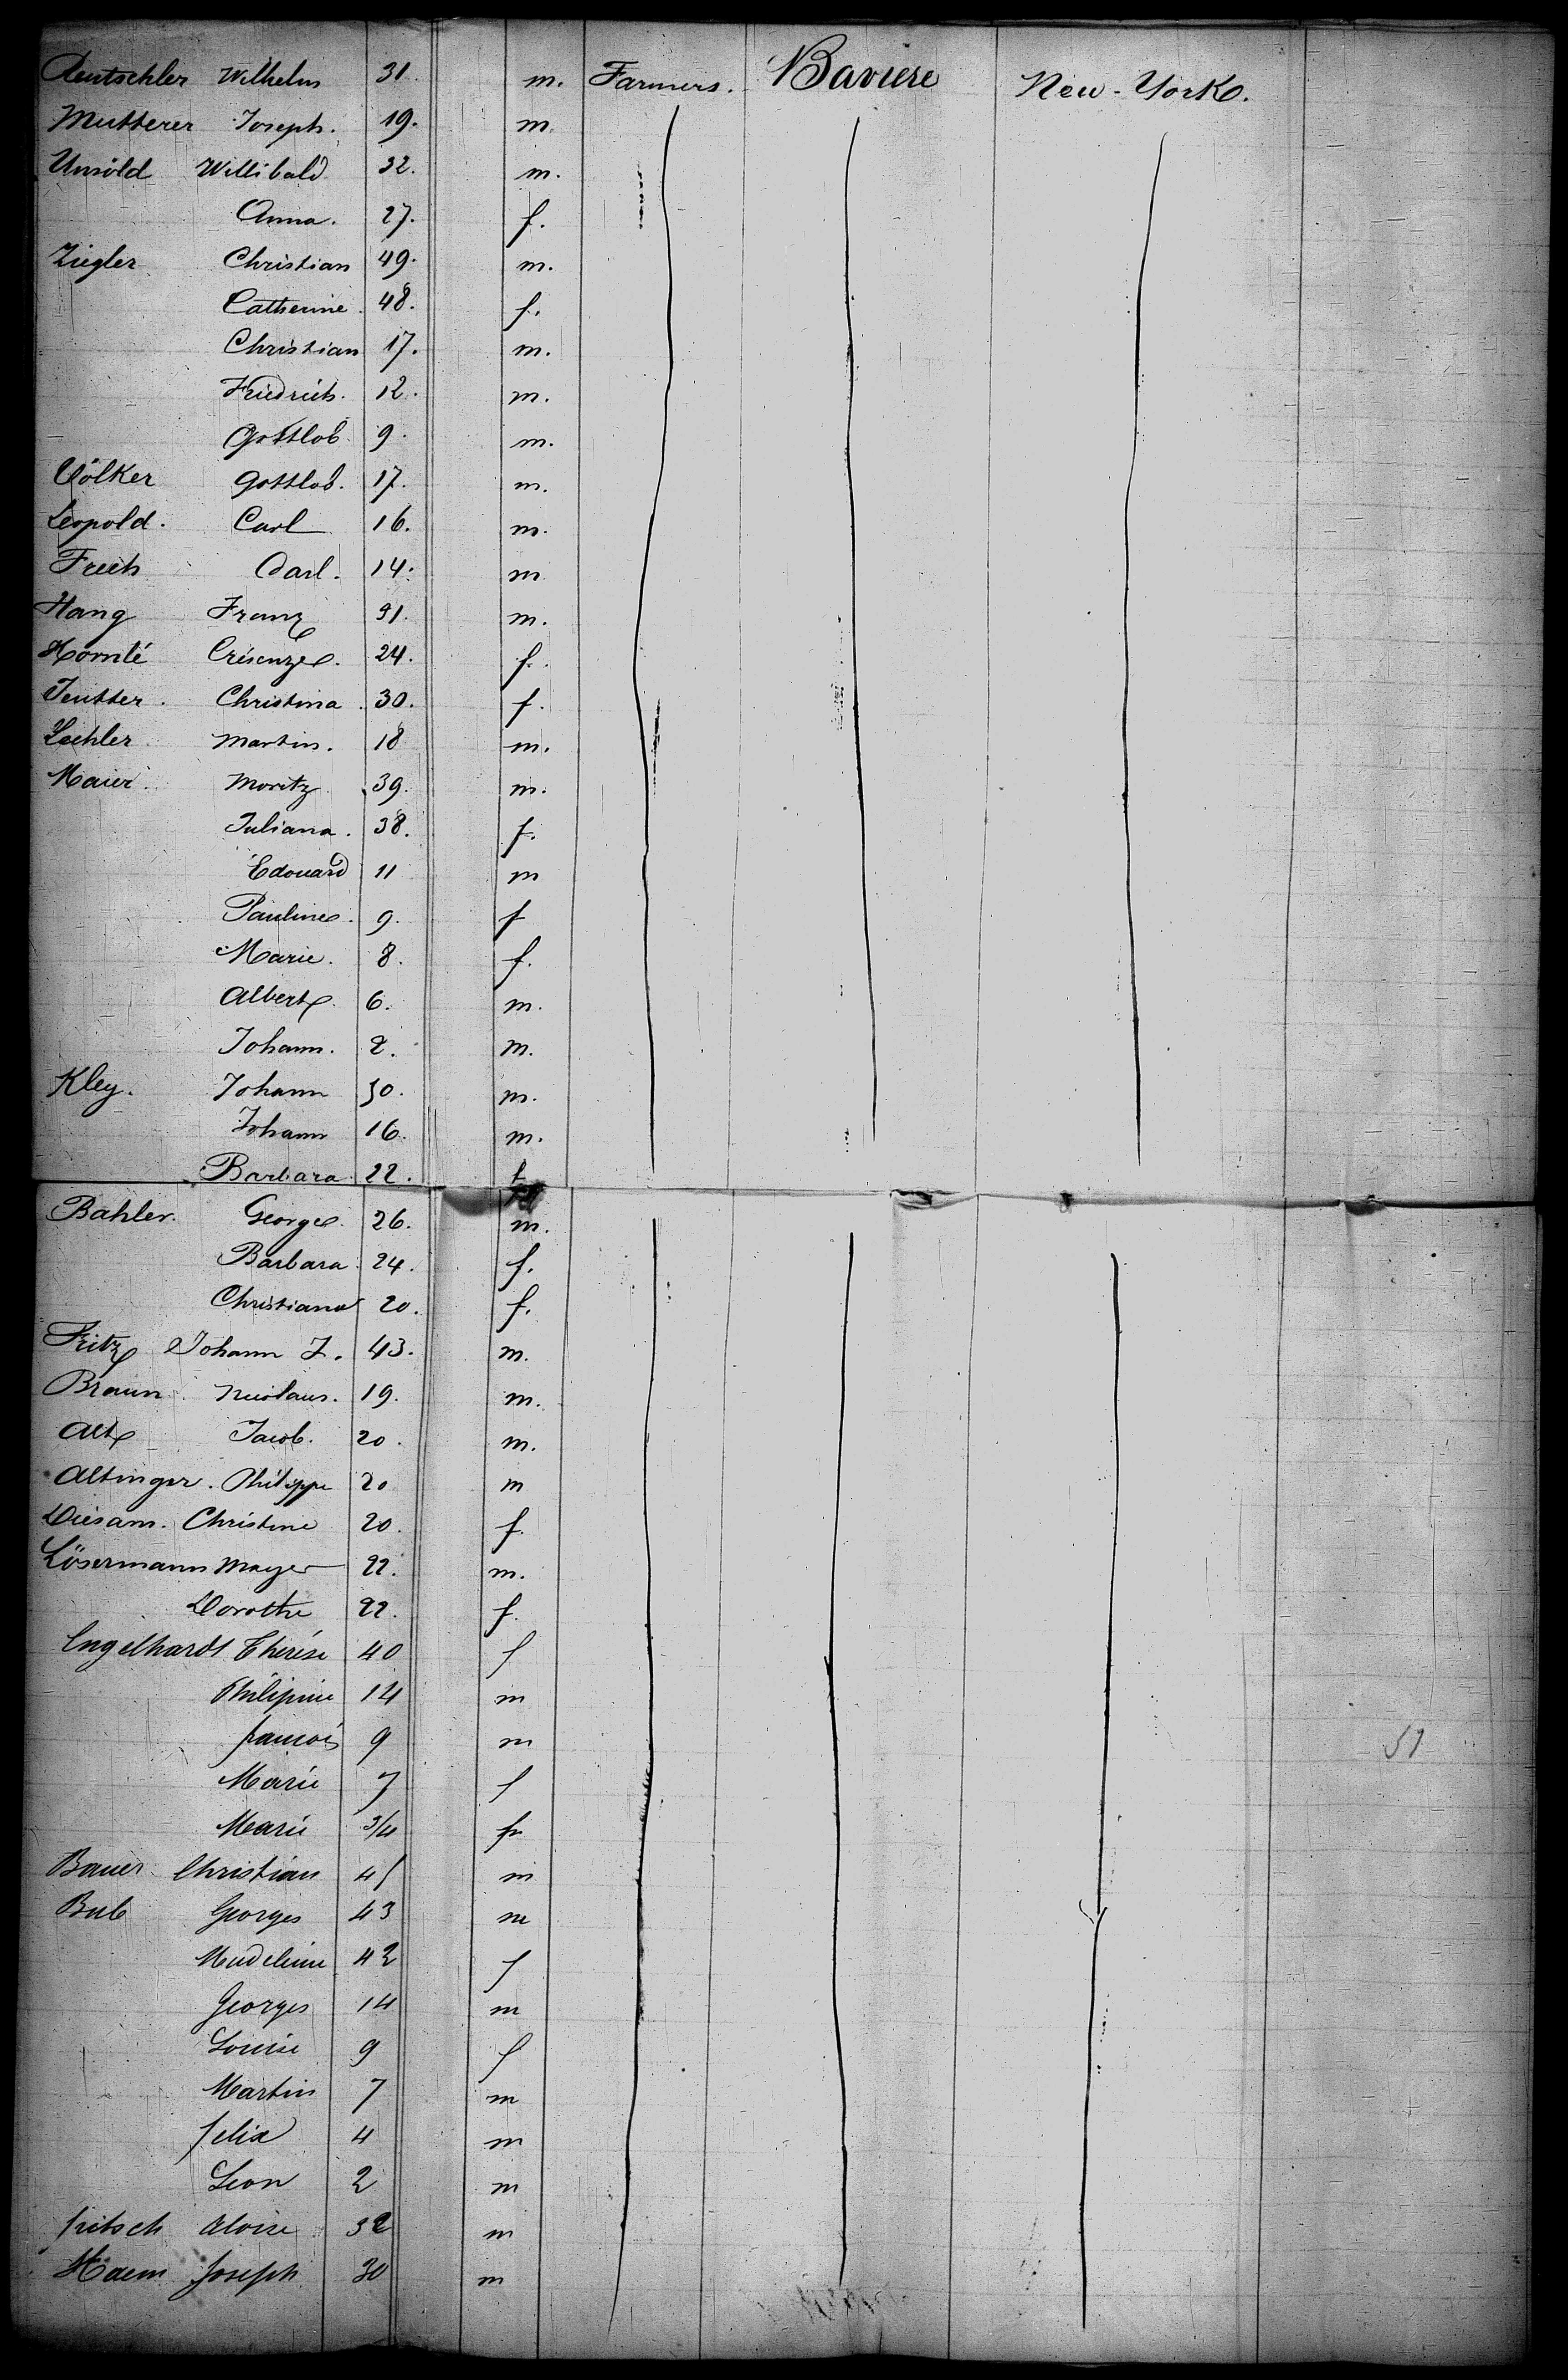 Aentschler Wilhelm 31. m. Farmers. Baviere New-York.
Mutterer Joseph. 19. m.
Unsöld Willibald 32. m.
Anna. 27. f.
Ziegler Christian 49. m.
Catherine. 48. f.
Christian 17. m.
Friedrich. 12. m.
Gottlob 9. m.
Völker Gottlob. 17. m.
Leopold. Carl 16. m.
Frech Carl. 14. m
Hang Franz 31. m.
Hornlé Crésenze. 24. f.
Jeutter. Christina. 30. f.
Lechler Martin. 18 m.
Maier. Moritz. 39. m.
Juliana. 38. f.
Edouard 11 m
Pauline. 9. f
Marie. 8. f.
Albert. 6. m.
Johann. 2. m.
Kley. Johann 50. m.
Johann 16. m.
Barbara 22. f
Bahler. George. 26. m.
Barbara 24. f.
Christiana 20. f.
Fritz Johann J. 43. m.
Braun. Nicolaus. 19. m.
Alt Jacob. 20. m.
Altinger. Philippe 20 m
Diesam. Christine 20. f.
Lösermann Mayer 22. m.
Dorothe 22. f.
Engelhardt Thérése 40 f
Philipine 14 m
francois 9 m
Marie 7 f
Marie 3/4 f
Bauer Christian 45 m
Bub Georges 43 m
Madeleine 42 f
Georges 14 m
Louise 9 f
Martin 7 m
felix 4 m
Leon 2 m
fritsch Aloise 32 m
Haem Joseph 30 m
51